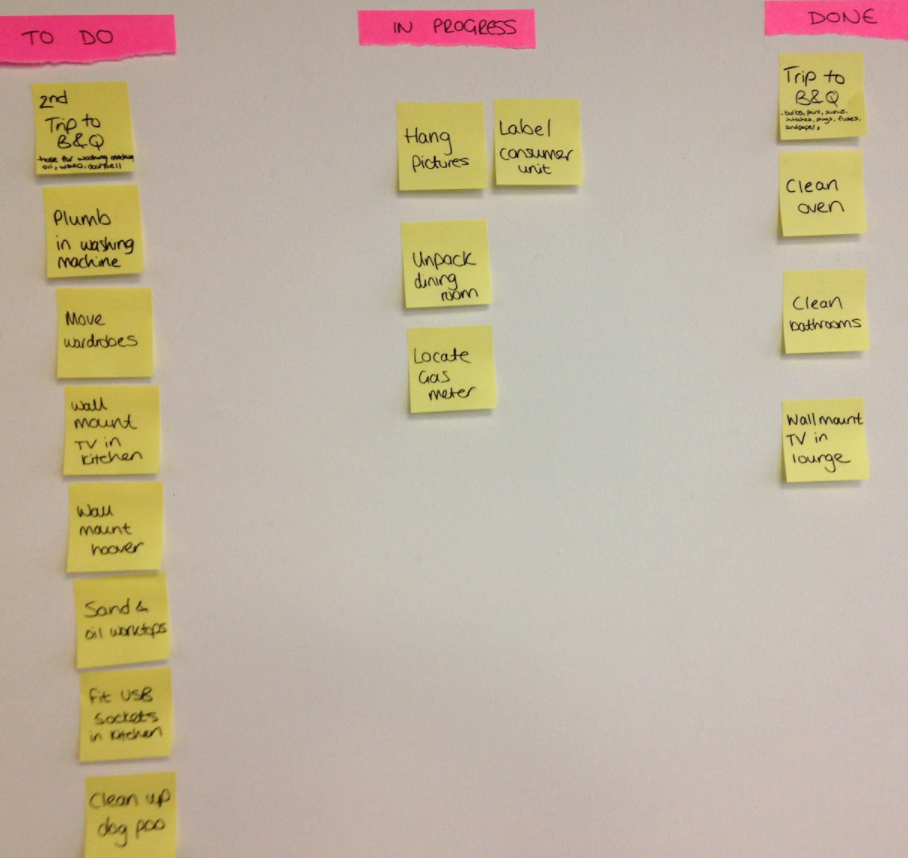 TO DO
2nd
Trip to
B&Q
hose for washing machine
oil, doorbell
Plumb
in washing
machine
Move
wardrobes
Wall
mount
TV in
kitchen
Wall
mount
hoover
Sand &
oil worktops
Fit USB
sockets
in kitchen
Clean up
dog poo
IN PROGRESS
Hang
Pictures
Label
consumer
unit
Unpack
dining
room
Locate
Gas
meter
DONE
Trip to
B&Q
- bulbs, paint, screws,
switches, plugs, fuses,
sandpaper,
Clean
oven
Clean
bathrooms
Wall mount
TV in
lounge